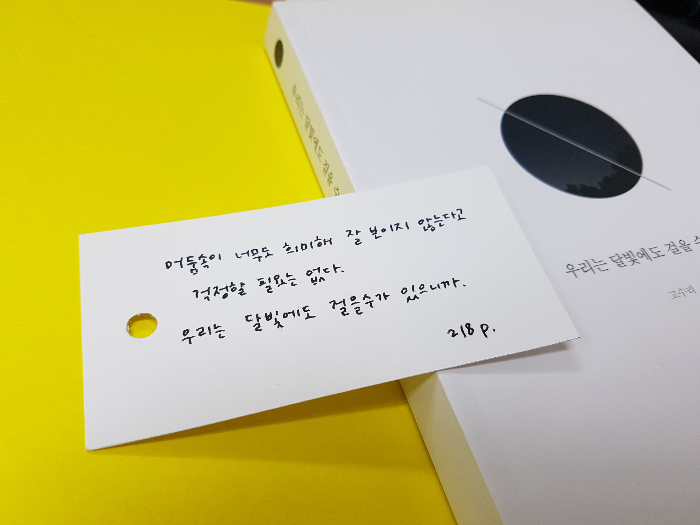 어둠속이 너무도 희미해 잘 보이지 않는다고
걱정할 필요는 없다.
우리는 달빛에도 걸을수가 있으니까.
218 p.
우리는 달빛에도 걸을 수
우리는 달빛에도 걸을 수
고수리